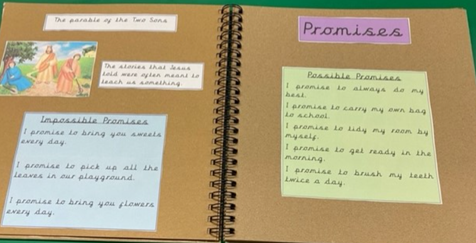 The parable of the Two Sons
The stories that Jesus
told were often meant to
teach us something.
Impossible Promises
I promise to bring you sweets
every day.
I promise to pick up all the
leaves in our playground.
I promise to bring you flowers
every day.
Promises
Possible Promises
I promise to always do my
best.
I promise to carry my own bag
to school.
I promise to tidy my room by
myself.
I promise to get ready in the
morning.
I promise to brush my teeth
twice a day.